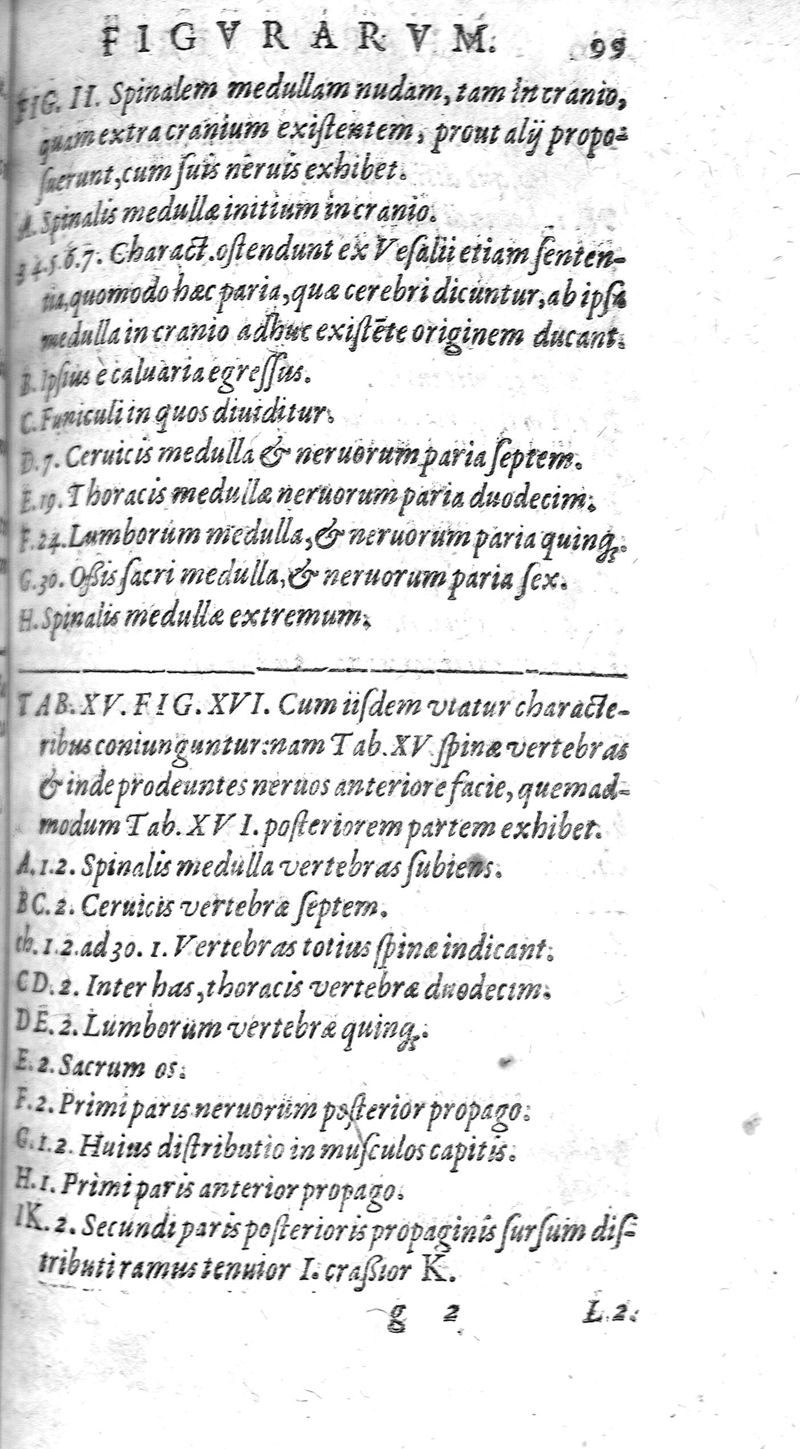 FIGVRARVM. 99
FIG. II. Spinalem medullam nudam, tam in cranio,
quam extra cranium exiſtentem, prout alij propo-
ſuerunt, cum ſuis neruis exhibet.
A. Spinalis medullæ initium in cranio.
3 4. 5. 6. 7. Charact. oſtendunt ex Veſalii etiam ſenten-
tia, quomodo hæc paria, quæ cerebri dicuntur, ab ipſa
medulla in cranio adhuc exiſtēte originem ducant.
B. Ipſius è caluaria egreſſus.
C. Funiculi in quos diuiditur.
D. 7. Ceruicis medulla & neruorum paria ſeptem.
E. 19. Thoracis medullæ neruorum paria duodecim.
F. 24. Lumborum medulla, & neruorum paria quinq;.
G. 30. Oßis ſacri medulla, & neruorum paria ſex.
H. Spinalis medullæ extremum.
TAB. XV. FIG. XVI. Cum iiſdem vtatur characte-
ribus coniunguntur: nam Tab. XV ſpinæ vertebras
& inde prodeuntes neruos anteriore facie, quemad-
modum Tab. XVI. poſteriorem partem exhibet.
A. 1. 2. Spinalis medulla vertebras ſubiens.
BC. 2. Ceruicis vertebræ ſeptem.
ch. 1. 2. ad 30. 1. Vertebras totius ſpinæ indicant.
CD. 2. Inter has, thoracis vertebræ duodecim.
DE. 2. Lumborum vertebræ quinq;.
E. 2. Sacrum os.
F. 2. Primi paris neruorum poſterior propago.
G. 1. 2. Huius diſtributio in muſculos capitis.
H. 1. Primi paris anterior propago.
IK. 2. Secundi paris poſterioris propaginis ſurſum diſ-
tributi ramus tenuior I. craßior K.
g 2 L. 2.